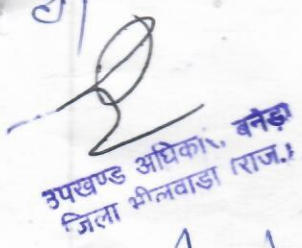 उपखण्ड अधिकारी, बनेड़ा
जिला भीलवाडा (राज.)